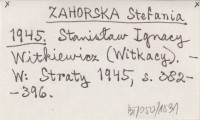 ZAHORSKA Stefania
1945. Stanisław Ignacy
Witkiewicz (Witkacy). –
W: Straty 1945, s. 382–
–396.